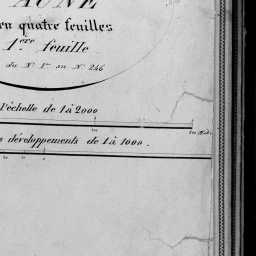 AUNE
en quatre feuilles
1ère feuille
du N° 1er au N° 246
l'échelle de 1 à 2000
développements de 1 à 1000.